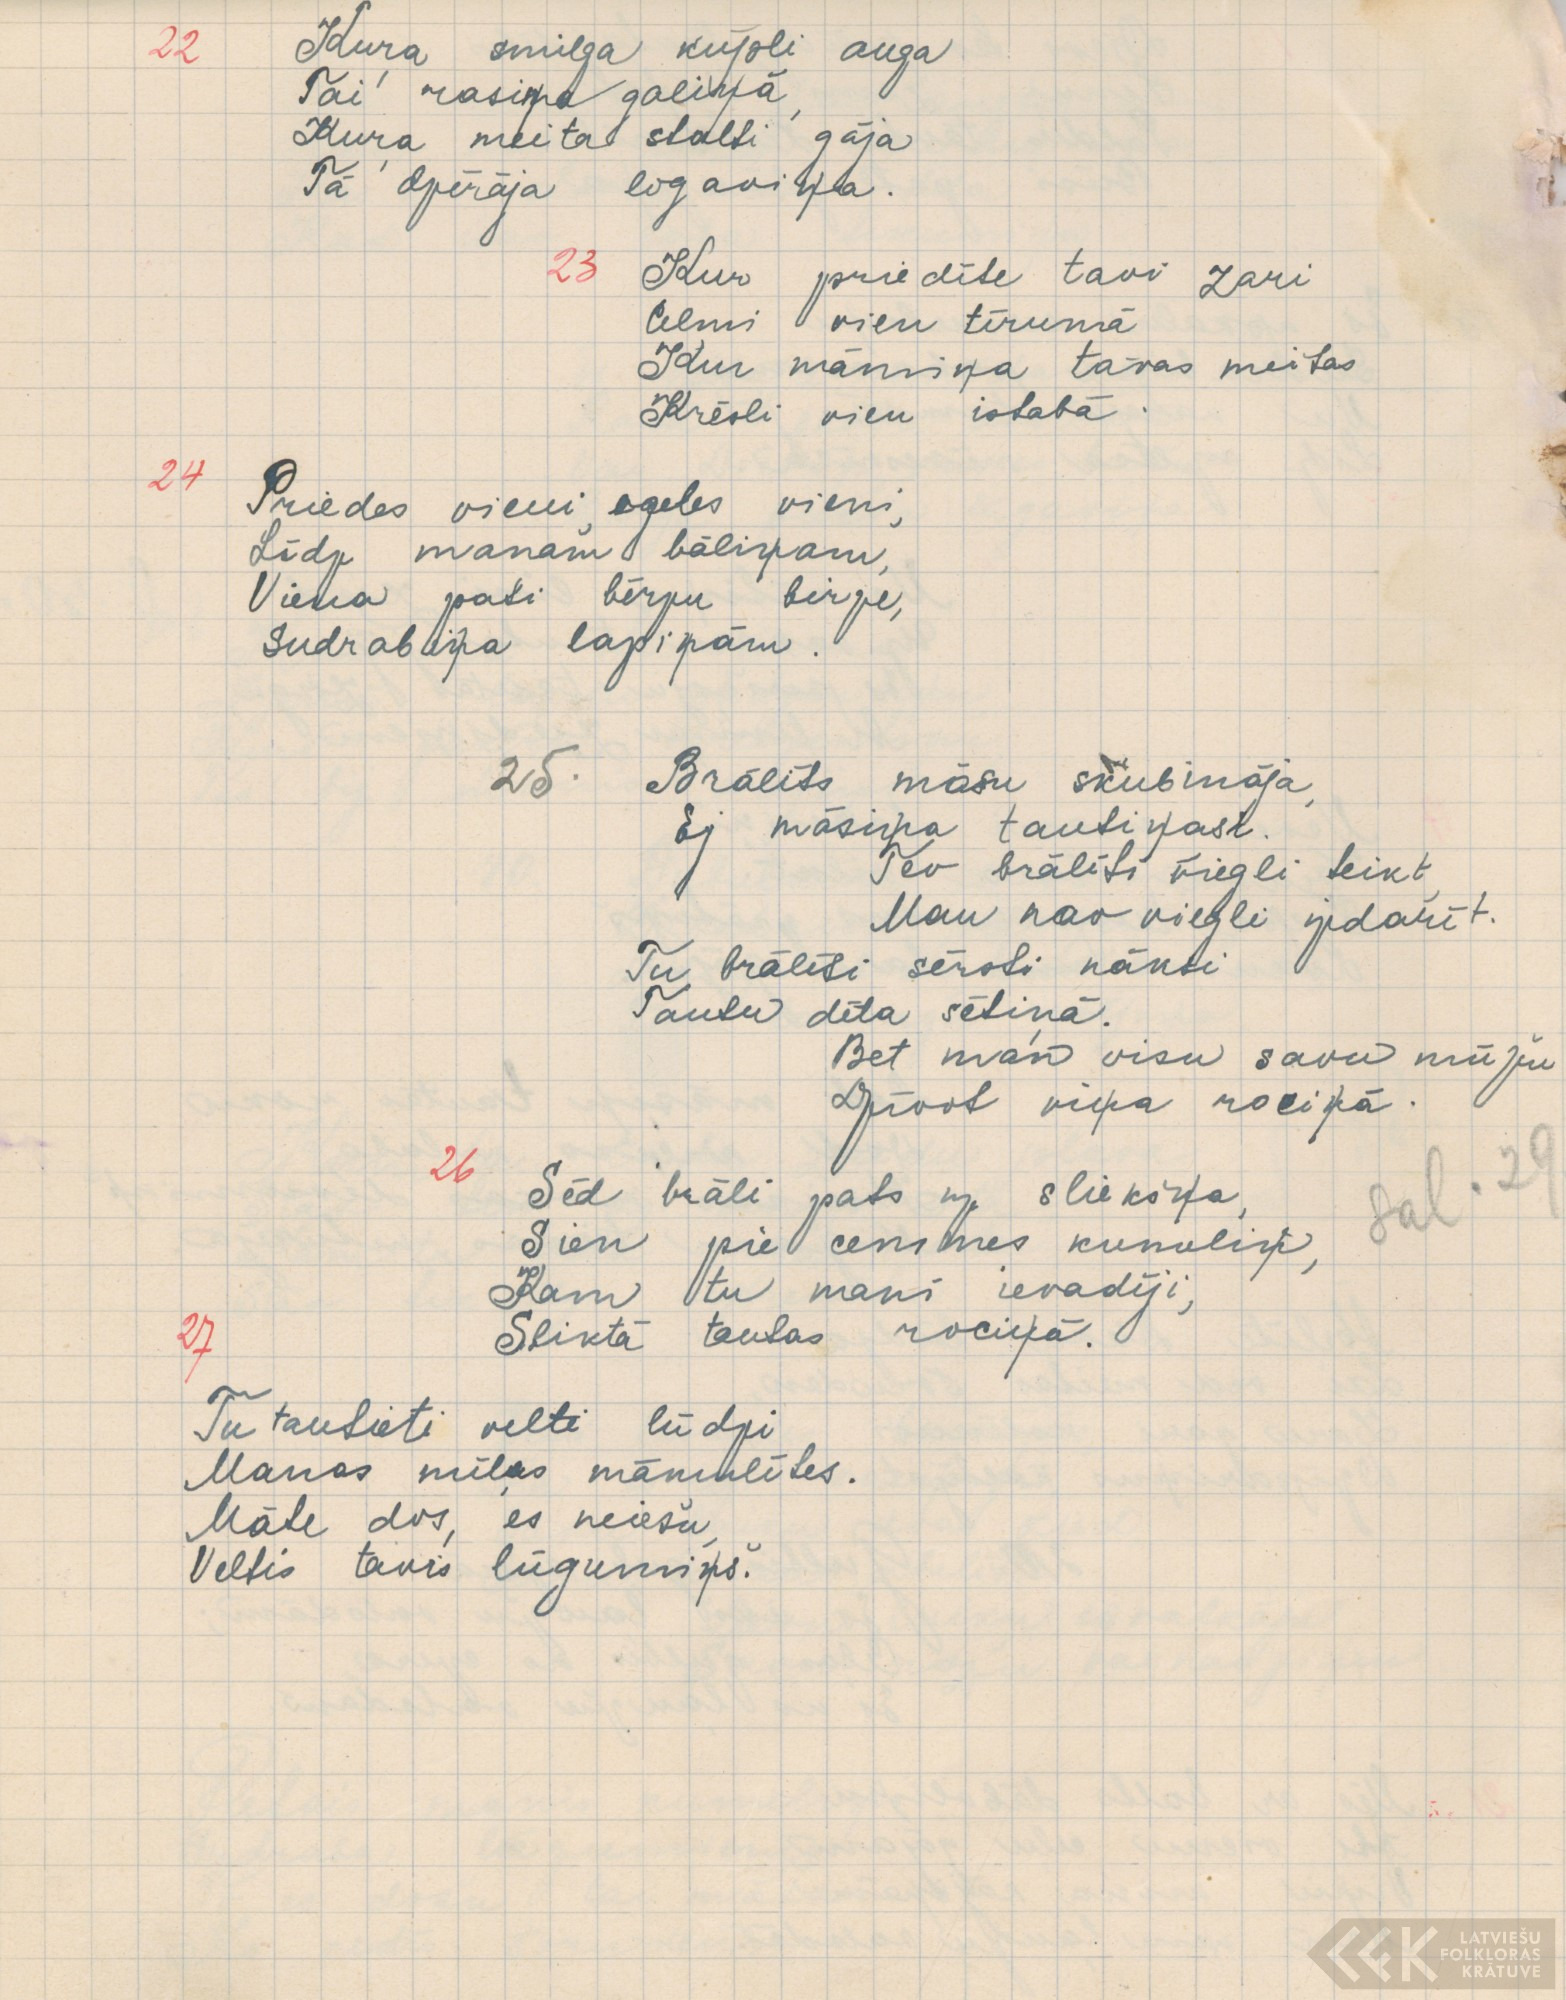 22
Kuŗa smilga kupli auga
Tai rasiņa galiņā,
Kuŗa meita stalti gāja
Tā dzērāja līgaviņa.
23
Kur priedīte tavi zari
Celmi vien tīrumā
Kur māmiņa tavas meitas
Krēsli vien istabā.
24
Priedes vieni, egeles vieni,
Līdz manam bāliņam,
Viena pati bērzu birze,
Sudrabiņa lapiņām.
25.
Brālīts māsu skubināja,
Ej māsiņa tautiņasi.
Tev brālīti viegli teikt,
Man nav viegli izdarīt.
Tu brālīti sērsti nāksi
Tautu dēla sētiņā.
Bet man visu savu mūžu
Dzīvot viņa rociņā.
26
Sēd brāli pats uz sliekšņa,
Sien pie cemmes kumuliņ,
Kam tu mani ievadīji,
Sliktā tautas rociņā.
sal. 29
27
Tu tautieti velti lūdzi
Manas mīļas māmulītes.
Māte dos, es neiešu,
Veltis tavis lūgumiņš.
LATVIEŠU
FOLKLORAS
KRĀTUVE